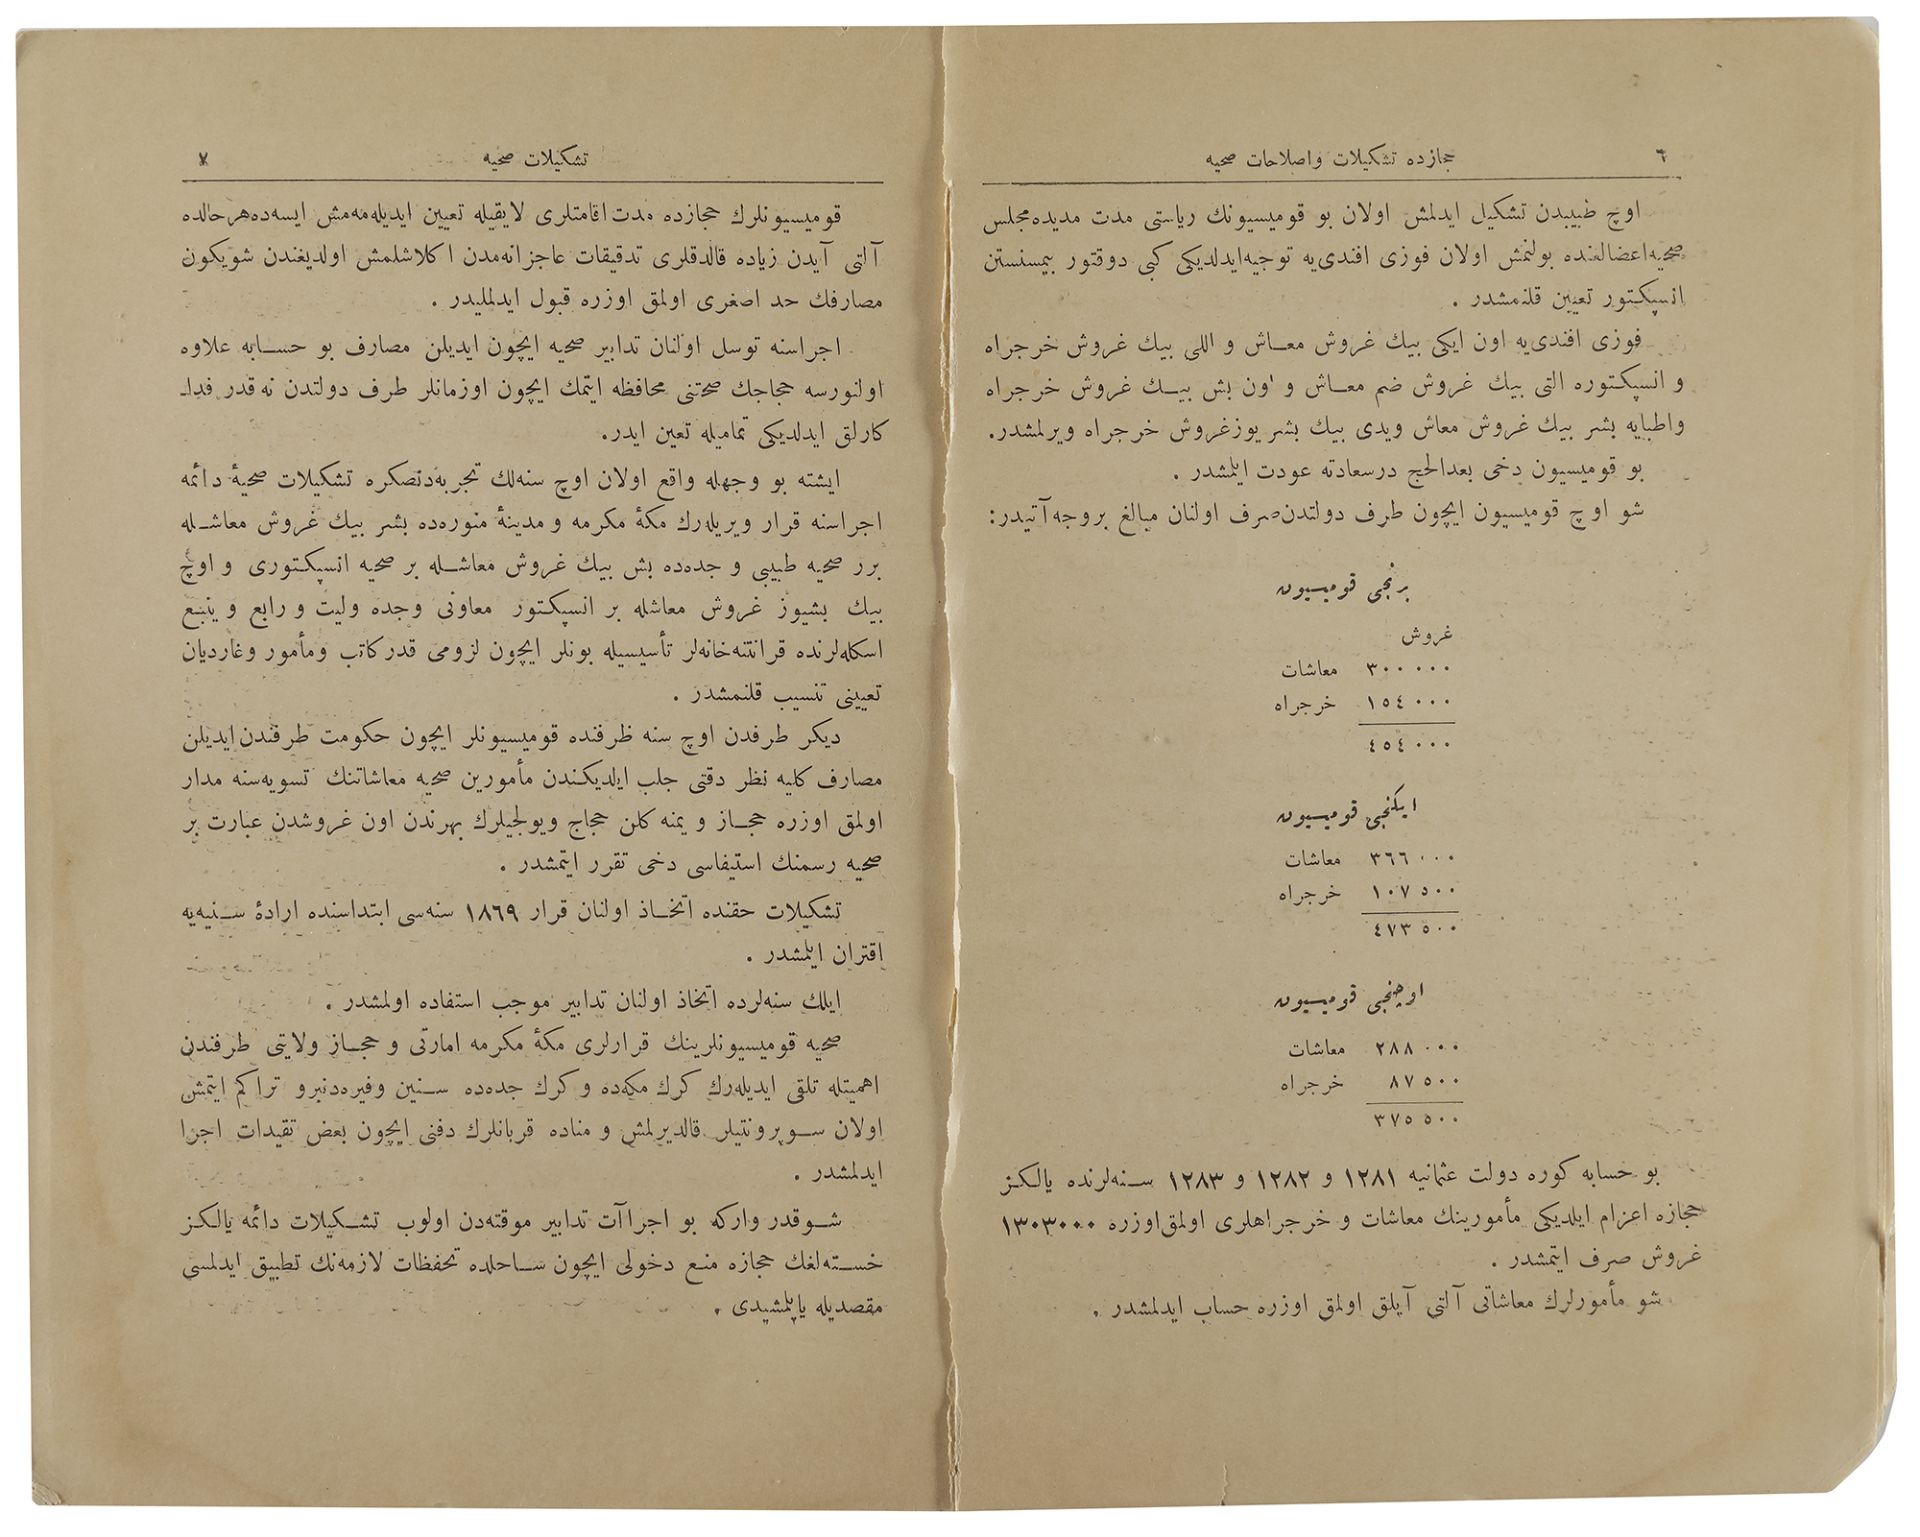 ٦
حجازده تشكيلات واصلاحات صحيه
اوچ طبيبدن تشكيل ايدلمش اولان بو قوميسيونك رياستى مدت مديده مجلس
صحيه اعضالغنده بولنمش اولان فوزى افندى‌يه توجيه ايدلديكى كبى دوقتور
انسپكتور تعيين قلنمشدر .
فوزى افندى‌يه اون ايكى بيك غروش معاش و اللى بيك غروش خرجراه
و انسپكتوره التى بيك غروش ضم معاش و اون بش بيك غروش خرجراه
واطبايه بشر بيك غروش معاش ويدى بيك بشر يوزغروش خرجراه ويرلمشدر.
بو قوميسيون دخى بعدالحج درسعادته عودت ايلمشدر .
شو اوچ قوميسيون ايچون طرف دولتدن صرف اولنان مبالغ بروجه آتيدر:
برنجى قوميسيون
غروش
٣٠٠٠٠٠ معاشات
١٥٤٠٠٠ خرجراه
٤٥٤٠٠٠
ايكنجى قوميسيون
٣٦٦٠٠٠ معاشات
١٠٧٥٠٠ خرجراه
٤٧٣٥٠٠
اوچنجى قوميسيون
٢٨٨٠٠٠ معاشات
٨٧٥٠٠ خرجراه
٣٧٥٥٠٠
بو حسابه كوره دولت عثمانيه ١٢٨١ و ١٢٨٢ و ١٢٨٣ سنه‌لرنده يالكز
حجازه اعزام ايلديكى مأمورينك معاشات و خرجراهلرى اولمق اوزره ١٣٠٣٠٠٠
غروش صرف ايتمشدر .
شو مأمورلرك معاشاتى آلتى آيلق اولمق اوزره حساب ايدلمشدر .
تشكيلات صحيه
٧
قوميسيونلرك حجازده مدت اقامتلرى لايقيله تعيين ايديله‌مه‌مش ايسه‌ده هرحالده
آلتى آيدن زياده قالدقلرى تدقيقات عاجزانه‌مدن اكلاشلمش اولديغندن شويكون
مصارفك حد اصغرى اولمق اوزره قبول ايدلمليدر .
اجراسنه توسل اولنان تدابير صحيه ايچون ايديلن مصارف بو حسابه علاوه
اولنورسه حجاجك صحتنى محافظه ايتمك ايچون اوزمانلر طرف دولتدن نه قدر فدا-
كارلق ايدلديكى تماميله تعين ايدر.
ايشته بو وجهله واقع اولان اوچ سنه‌لك تجربه‌دنصكره تشكيلات صحيهٔ دائمه
اجراسنه قرار ويريله‌رك مكهٔ مكرمه و مدينهٔ منوره‌ده بشر بيك غروش معاشله
برر صحيه طبيبى و جده‌ده بش بيك غروش معاشله بر صحيه انسپكتورى و اوچ
بيك بشيوز غروش معاشله بر انسپكتور معاونى وجده وليت و رابع و ينبع
اسكله‌لرنده قرانتنه‌خانه‌لر تأسيسيله بونلر ايچون لزومى قدر كاتب ومأمور وغارديان
تعيينى تنسيب قلنمشدر .
ديكر طرفدن اوچ سنه ظرفنده قوميسيونلر ايچون حكومت طرفندن ايديلن
مصارف كليه نظر دقتى جلب ايلديكندن مأمورين صحيه معاشاتنك تسويه‌سنه مدار
اولمق اوزره حجاز و يمنه كلن حجاج ويولجيلرك بهرندن اون غروشدن عبارت بر
صحيه رسمنك استيفاسى دخى تقرر ايتمشدر .
تشكيلات حقنده اتخاذ اولنان قرار ١٨٦٩ سنه‌سى ابتداسنده ارادهٔ سنيه‌يه
اقتران ايلمشدر .
ايلك سنه‌لرده اتخاذ اولنان تدابير موجب استفاده اولمشدر .
صحيه قوميسيونلرينك قرارلرى مكهٔ مكرمه امارتى و حجاز ولايتى طرفندن
اهميتله تلقى ايديله‌رك كرك مكه‌ده و كرك جده‌ده سنين وفيره‌دنبرو تراكم ايتمش
اولان سوپرونتيلر قالديرلمش و مناده قربانلرك دفنى ايچون بعض تقيدات اجرا
ايدلمشدر .
شوقدر واركه بو اجراآت تدابير موقته‌دن اولوب تشكيلات دائمه يالكز
خسته‌لغك حجازه منع دخولى ايچون ساحلده تحفظات لازمه‌نك تطبيق ايدلمسى
مقصديله ياپلمشيدى .